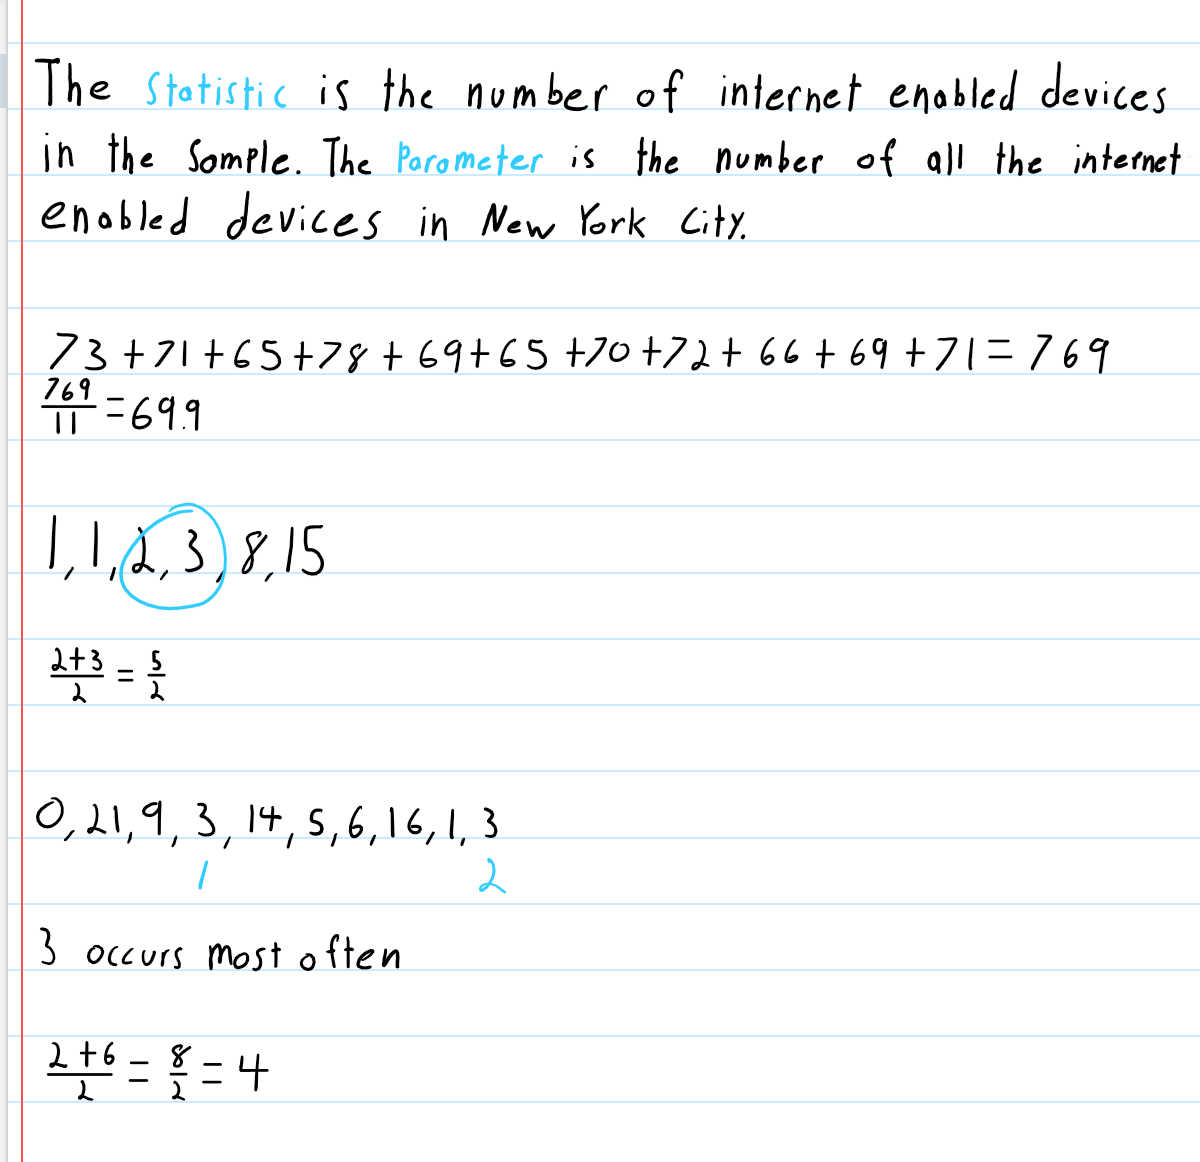 The Statistic is the number of internet enabled devices
in the Sample. The Parameter is the number of all the internet
enabled devices in New York City.
73+71+65+78+69+65+70+72+66+69+71=769
769/11=69.9
1,1,2,3,8,15
2+3/2=5/2
0,21,9,3,14,5,6,16,1,3
1 2
3 occurs most often
2+6/2=8/2=4